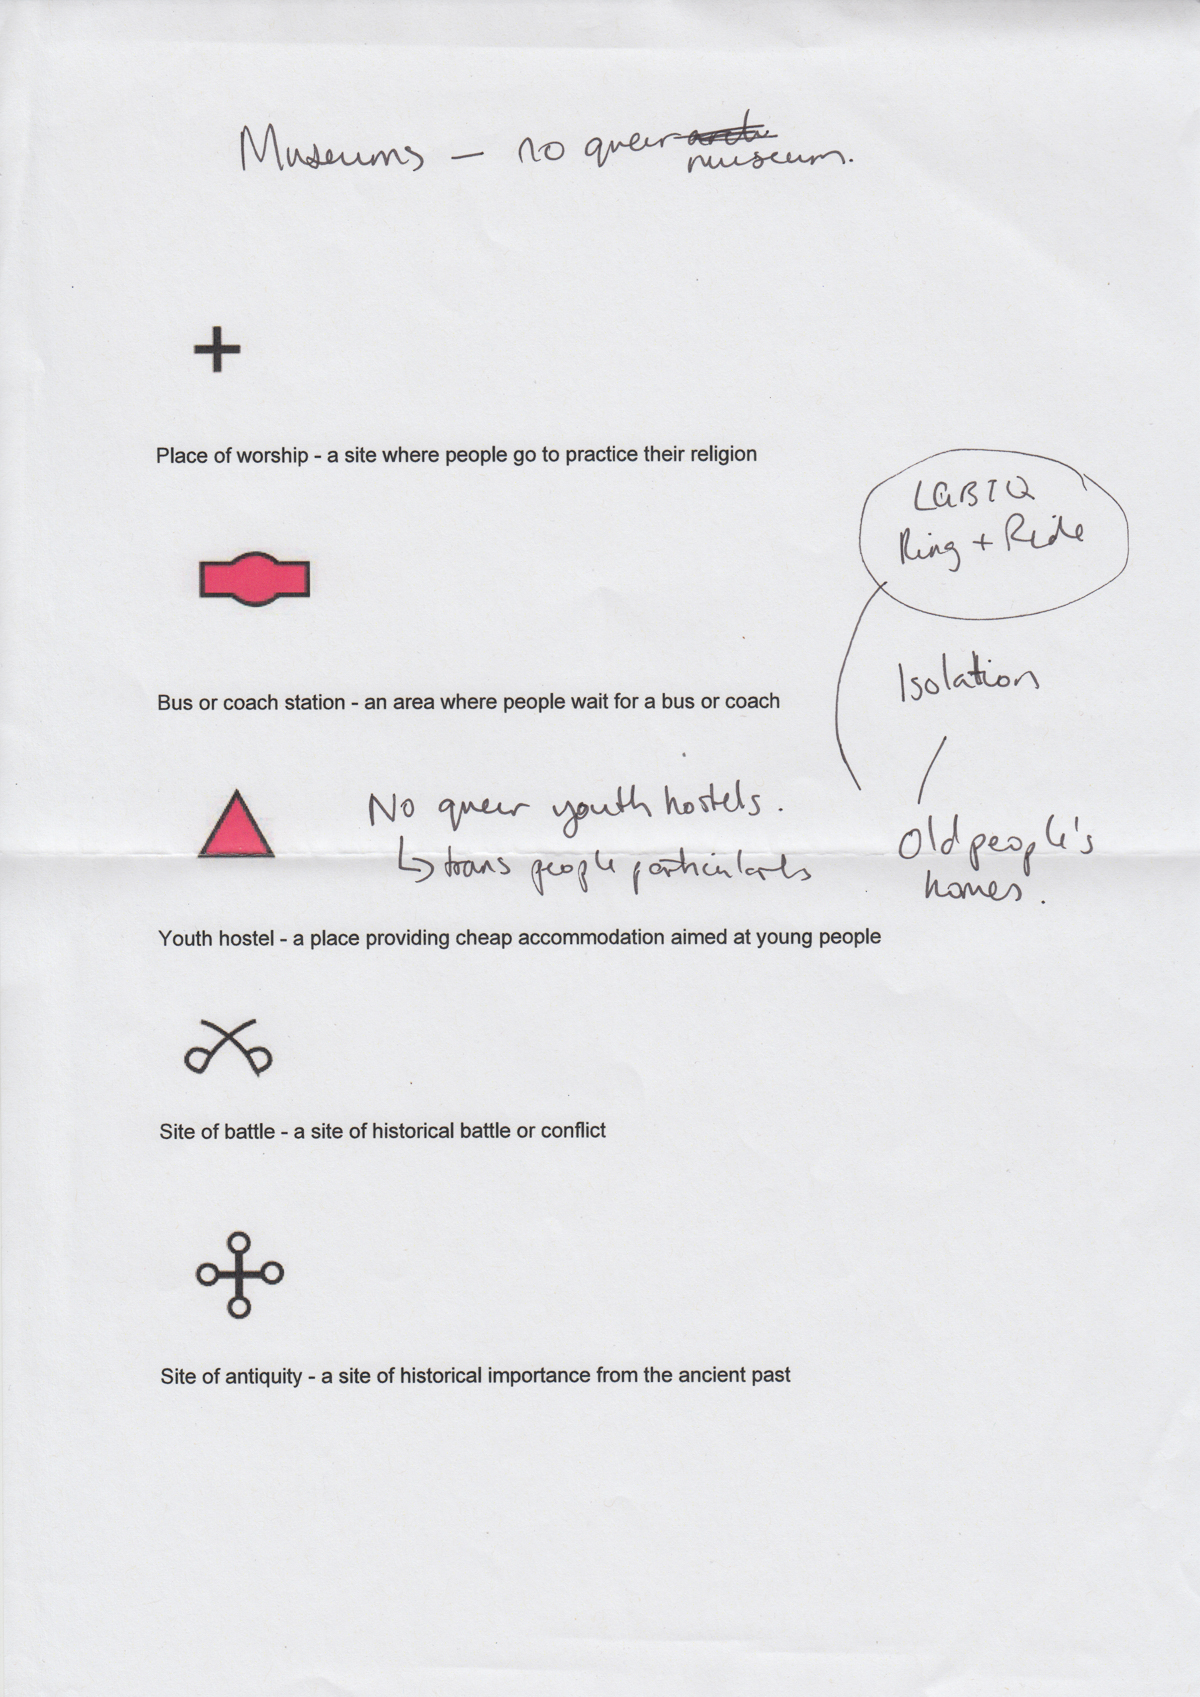 Museums — no queer
museum.
Place of worship - a site where people go to practice their religion
LGBTQ
Ring + Ride
Isolation
Bus or coach station - an area where people wait for a bus or coach
No queer youth hostels.
↳ trans people particularly
Old people's
homes.
Youth hostel - a place providing cheap accommodation aimed at young people
Site of battle - a site of historical battle or conflict
Site of antiquity - a site of historical importance from the ancient past